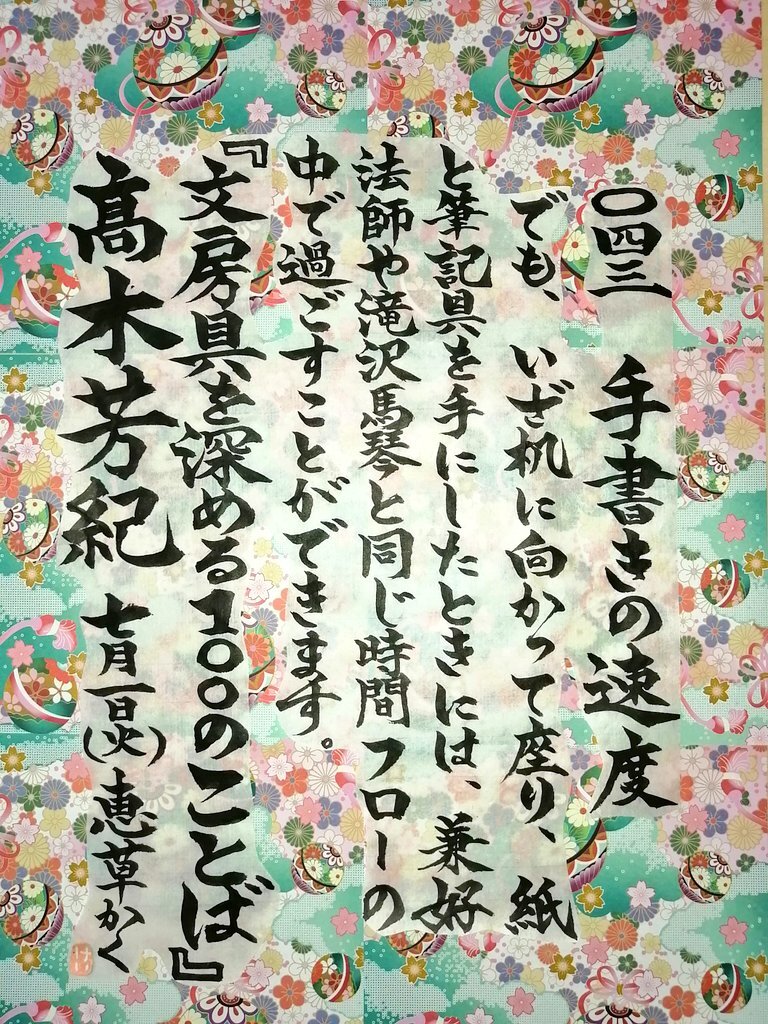 〇四三 手書きの速度
でも、いざ机に向かって座り、紙
と筆記具を手にしたときには、兼好
法師や滝沢馬琴と同じ時間フローの
中で過ごすことができます。
『文房具を深める100のことば』
髙木芳紀 七月一日(火) 恵草かく